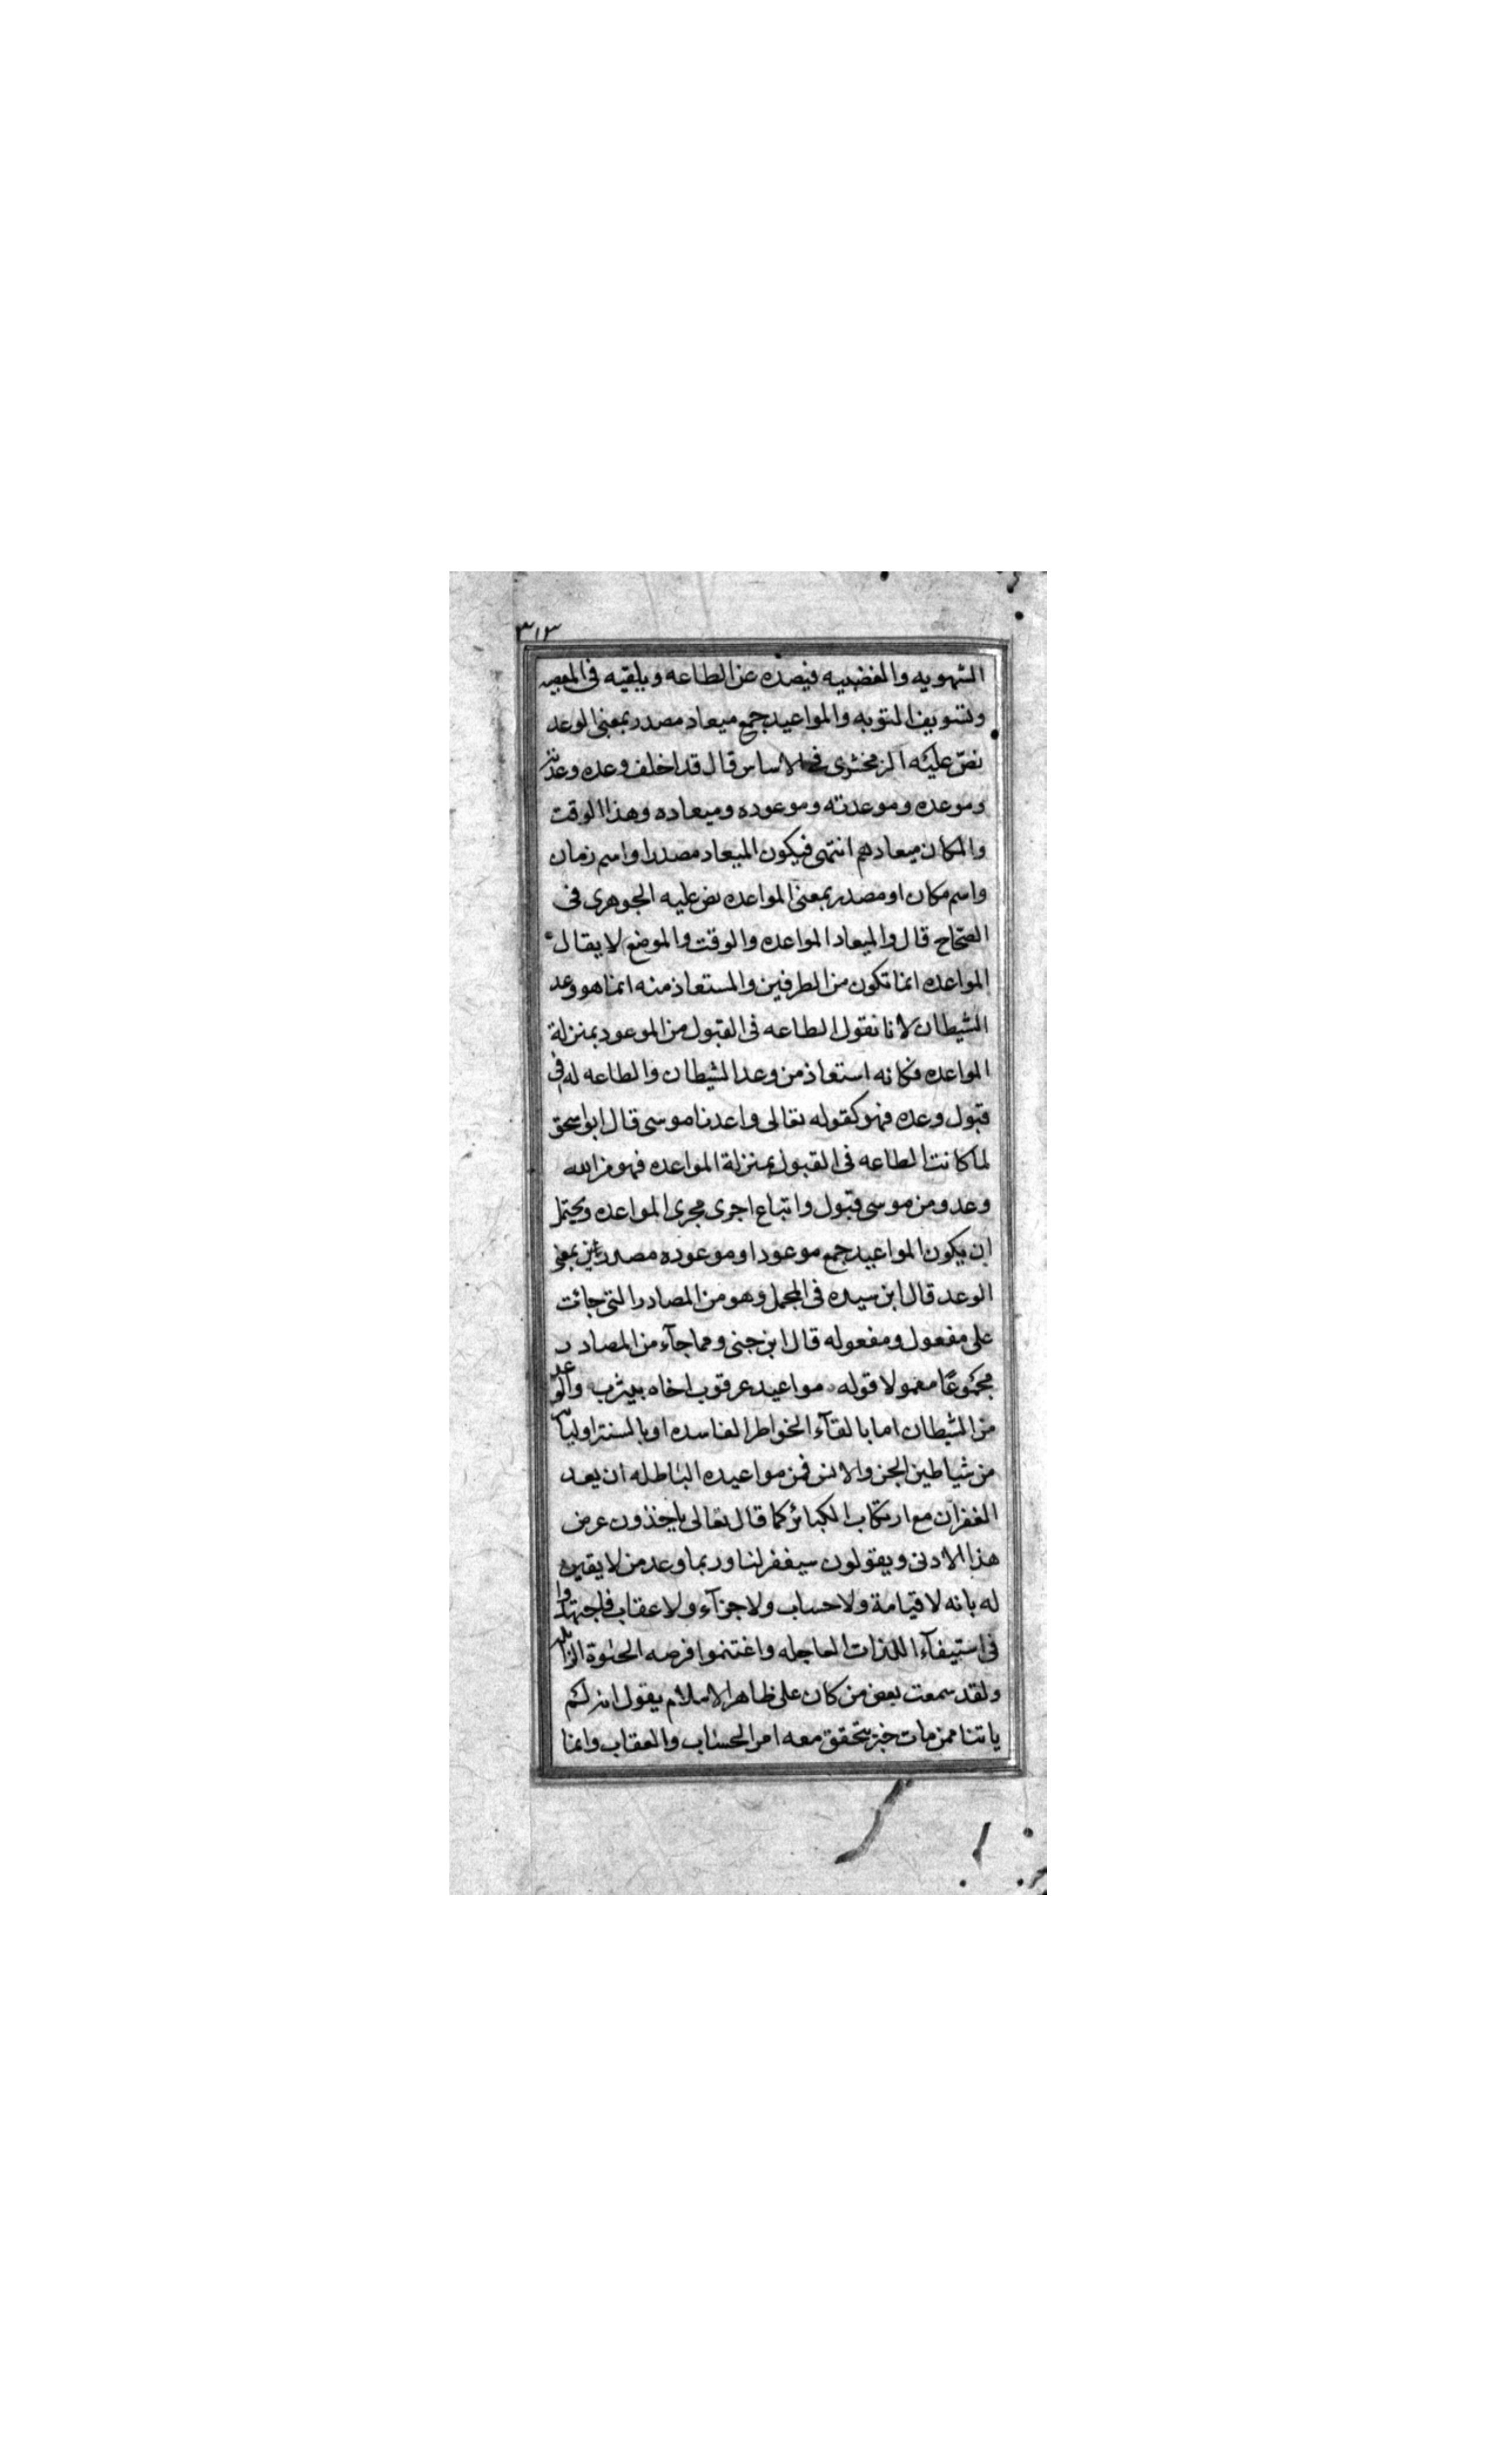 ٣١٣
الشهويه والغضبيه فيصده عن الطاعه ويلقيه فى المعصيه
وتسويف التوبه والمواعيد جمع ميعاد مصدر بمعنى الوعد
نصّ عليه الزمخشرى فى الاساس قال قد اخلف وعده وعدته
وموعده وموعدته وموعوده وميعاده وهذا الوقت
والمكان ميعادهم انتهى فيكون الميعاد مصدرا واسم زمان
واسم مكان او مصدر بمعنى المواعده نص عليه الجوهرى فى
الصّحاح قال والميعاد المواعده والوقت والموضع لا يقال
المواعده انما تكون من الطرفين والمستعاذ منه انما هو وعد
الشيطان لانا نقول الطاعه فى القبول من الموعود بمنزلة
المواعده فكانه استعاذ من وعد الشيطان والطاعه له فى
قبول وعده فهو كقوله تعالى واعدنا موسى قال ابو اسحق
لما كانت الطاعه فى القبول بمنزلة المواعده فهو من الله
وعد ومن موسى قبول واتباع اجرى مجرى المواعده ويحتمل
ان يكون المواعيد جمع موعود او موعوده مصدرين بمعنى
الوعد قال ابن سيده فى المحمل وهو من المصادر التى جائت
على مفعول ومفعوله قال ابن جنى ومما جآء من المصادر
مجموعًا معمولا قوله مواعيد عرقوب اخاه بيثرب والوعد
من الشيطان اما بالقآء الخواطر الفاسده او بالسنة اوليائه
من شياطين الجن والانس فمن مواعيده الباطله ان يعد
الغفران مع ارتكاب الكبائر كما قال تعالى ياخذون عرض
هذا الادنى ويقولون سيغفر لنا وربما وعد من لا يقين
له بانه لا قيامة ولا حساب ولا جزآء ولا عقاب فاجتهدوا
فى استيفآء اللذات العاجله واغتنموا فرصه الحيوة الزائله
ولقد سمعت بعض من كان على ظاهر الاسلام يقول انه لم
ياتنا ممن مات خبر يتحقق معه امر الحساب والعقاب وانما